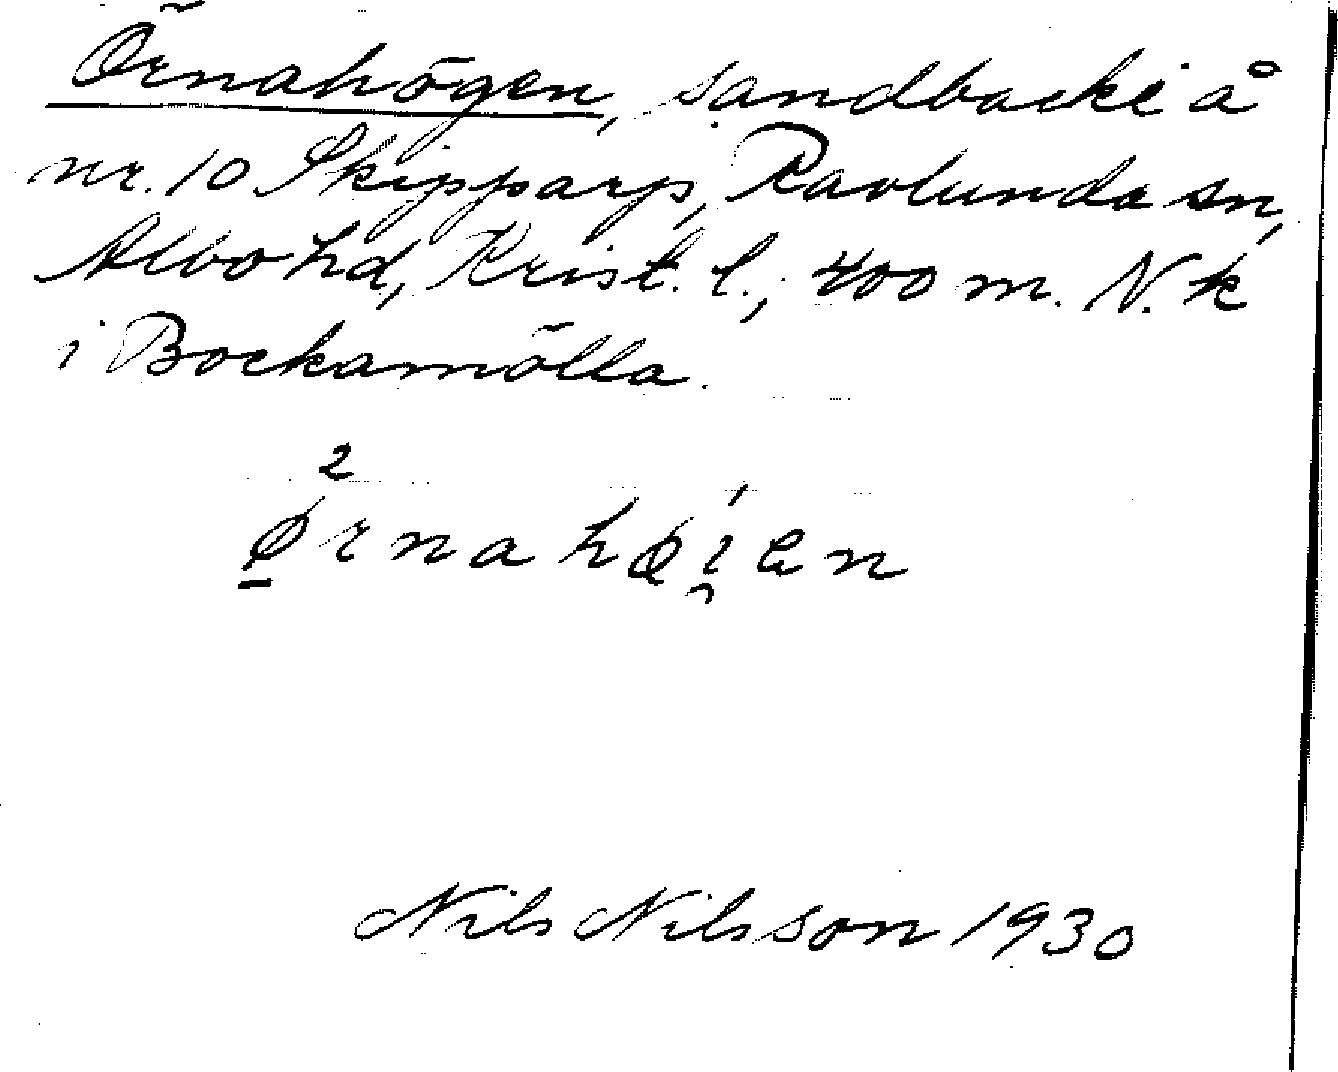 Örnahögen, sandbacke å
nr. 10 Skipparp, Ravlunda sn,
Albo hd, Krist. l.; 400 m. N. k
i Bockamölla.
2
ørnahøi̯en
Nils Nilsson 1930